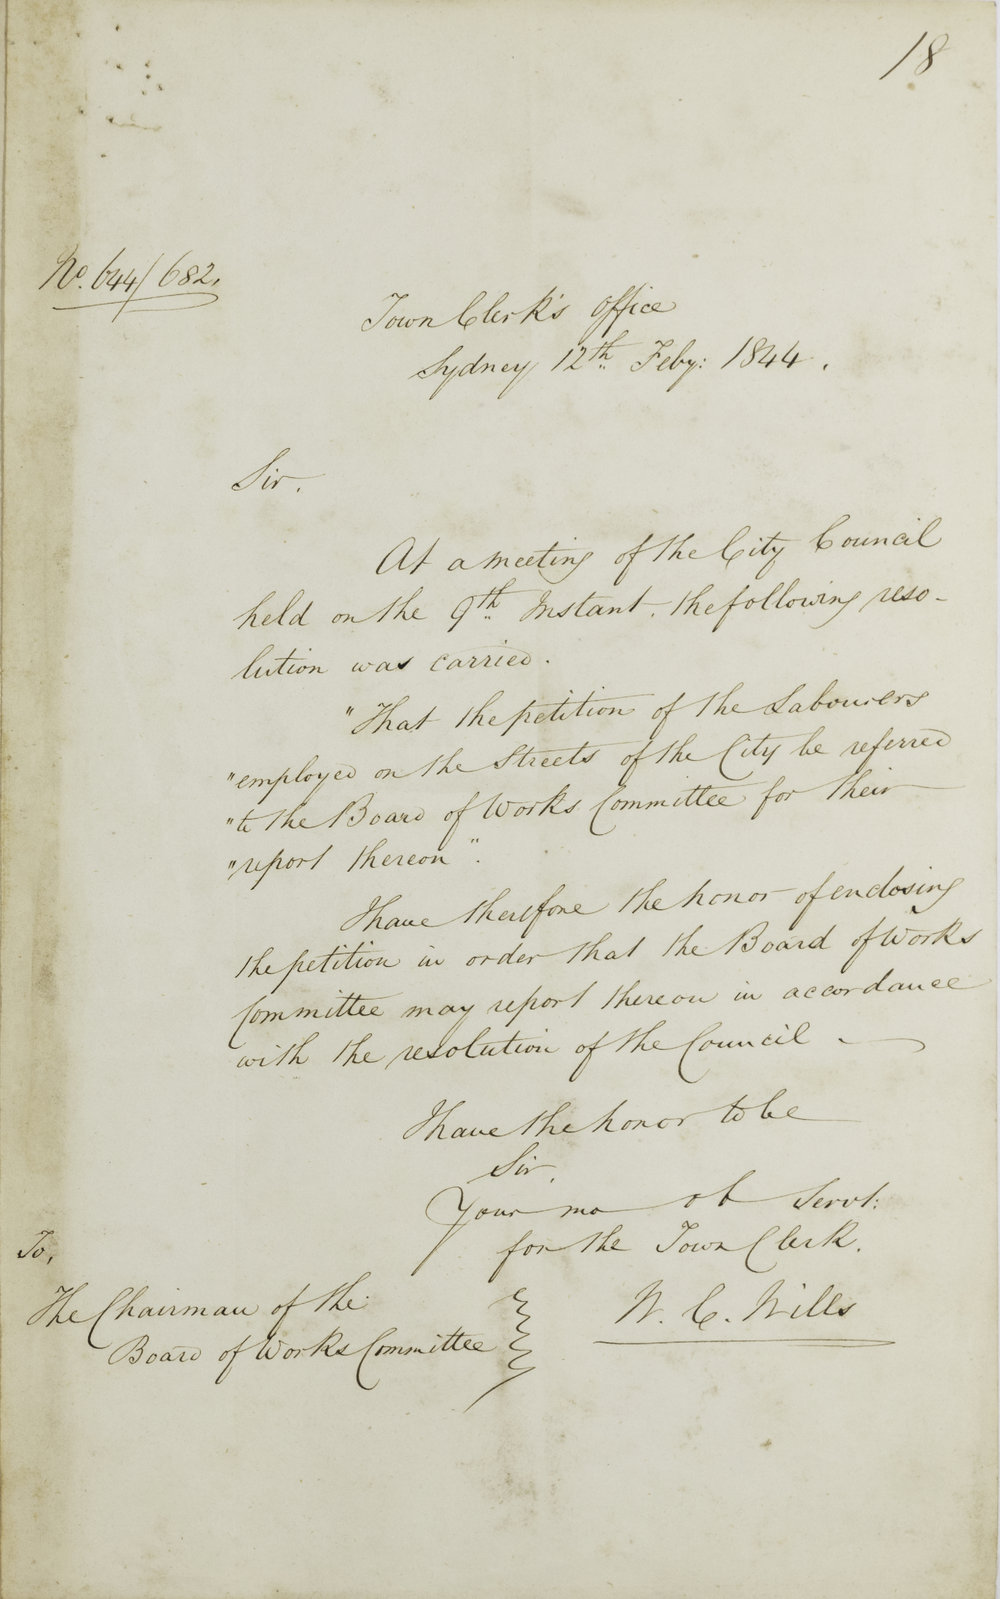 18
No. 644/682.
Town Clerk's Office
Sydney 12th Feby: 1844.
Sir.
At a meeting of the City Council
held on the 9th Instant. the following reso-
lution was carried.
"That the petition of the Labourers
"employed on the Streets of the City be referred
"to the Board of Works Committee for their
"report thereon".
I have therefore the honor of enclosing
the petition in order that the Board of Works
Committee may report thereon in accordance
with the resolution of the Council.
I have the honor to be
Sir,
Your mo ob Servt:
for the Town Clerk.
W. C. Wills
To,
The Chairman of the
Board of Works Committee